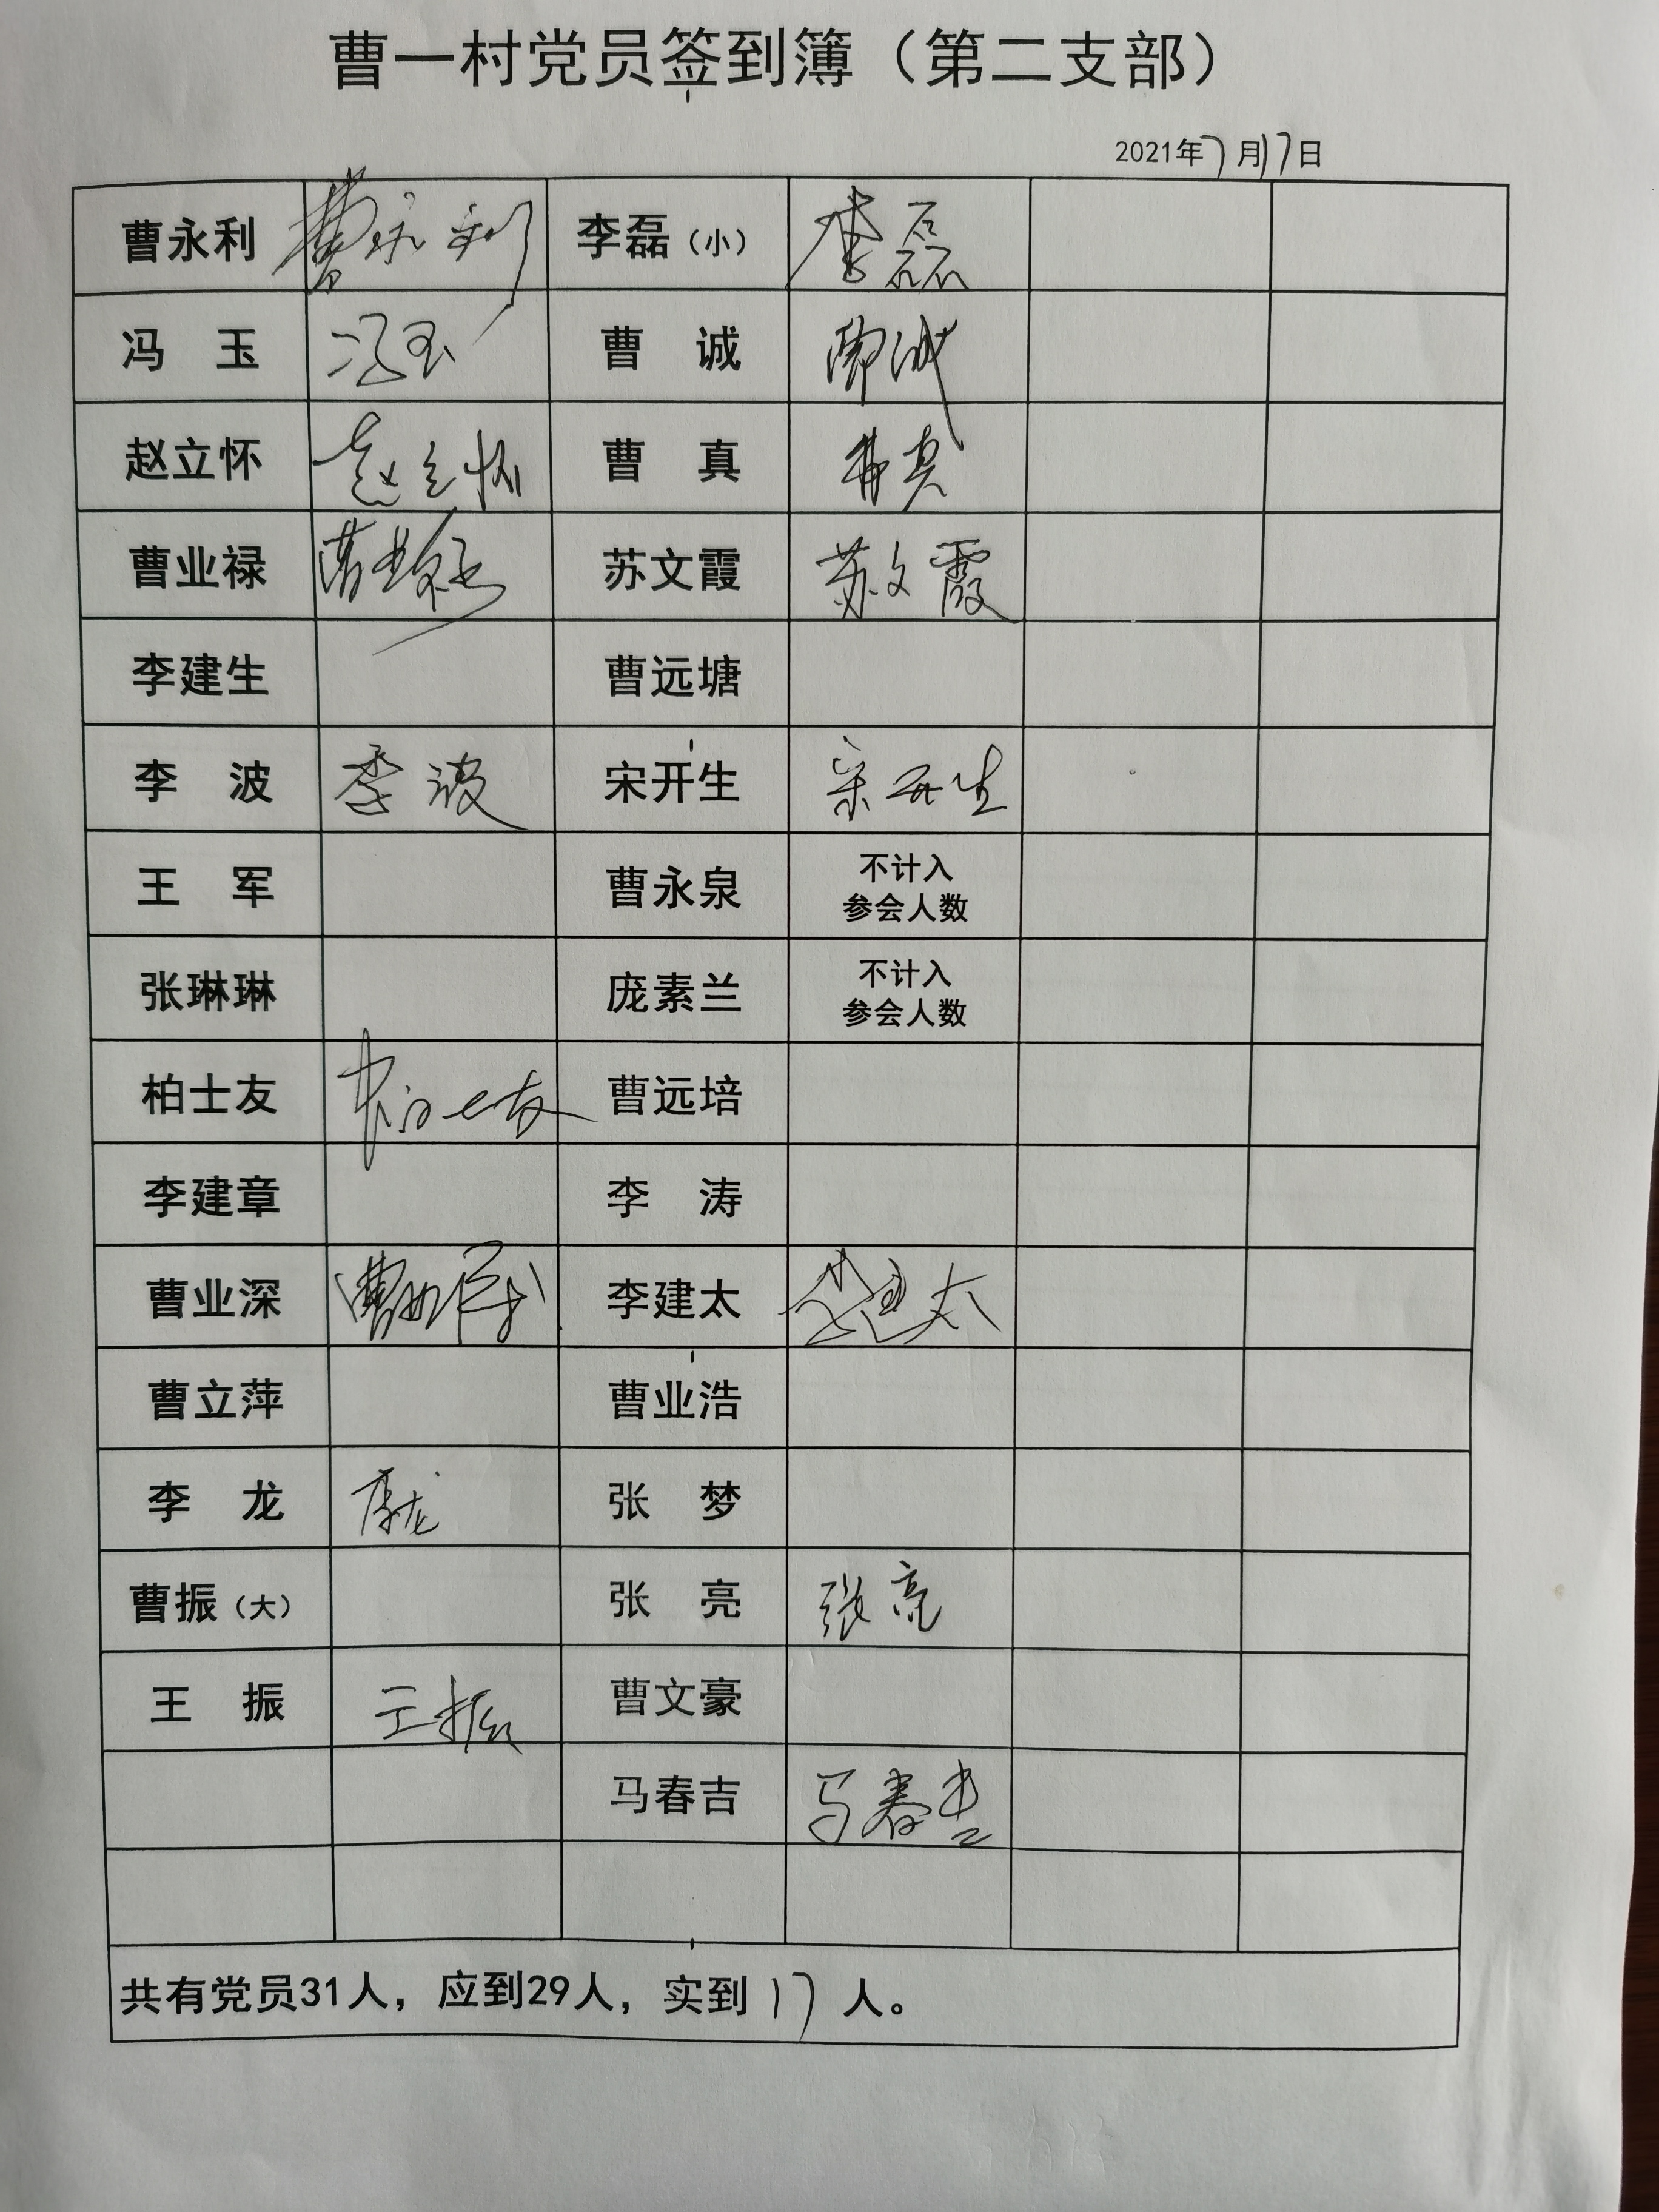 曹一村党员签到簿（第二支部）
2021年7月17日
曹永利 曹永利 李磊（小） 李磊
冯 玉 冯玉 曹 诚 曹诚
赵立怀 赵立怀 曹 真 曹真
曹业禄 曹业禄 苏文霞 苏文霞
李建生 曹远塘
李 波 李波 宋开生 宋开生
王 军 曹永泉 不计入
参会人数
张琳琳 庞素兰 不计入
参会人数
柏士友 柏士友 曹远培
李建章 李 涛
曹业深 曹业深 李建太 李建太
曹立萍 曹业浩
李 龙 李龙 张 梦
曹振（大） 张 亮 张亮
王 振 王振 曹文豪
马春吉 马春吉
共有党员31人，应到29人，实到17人。